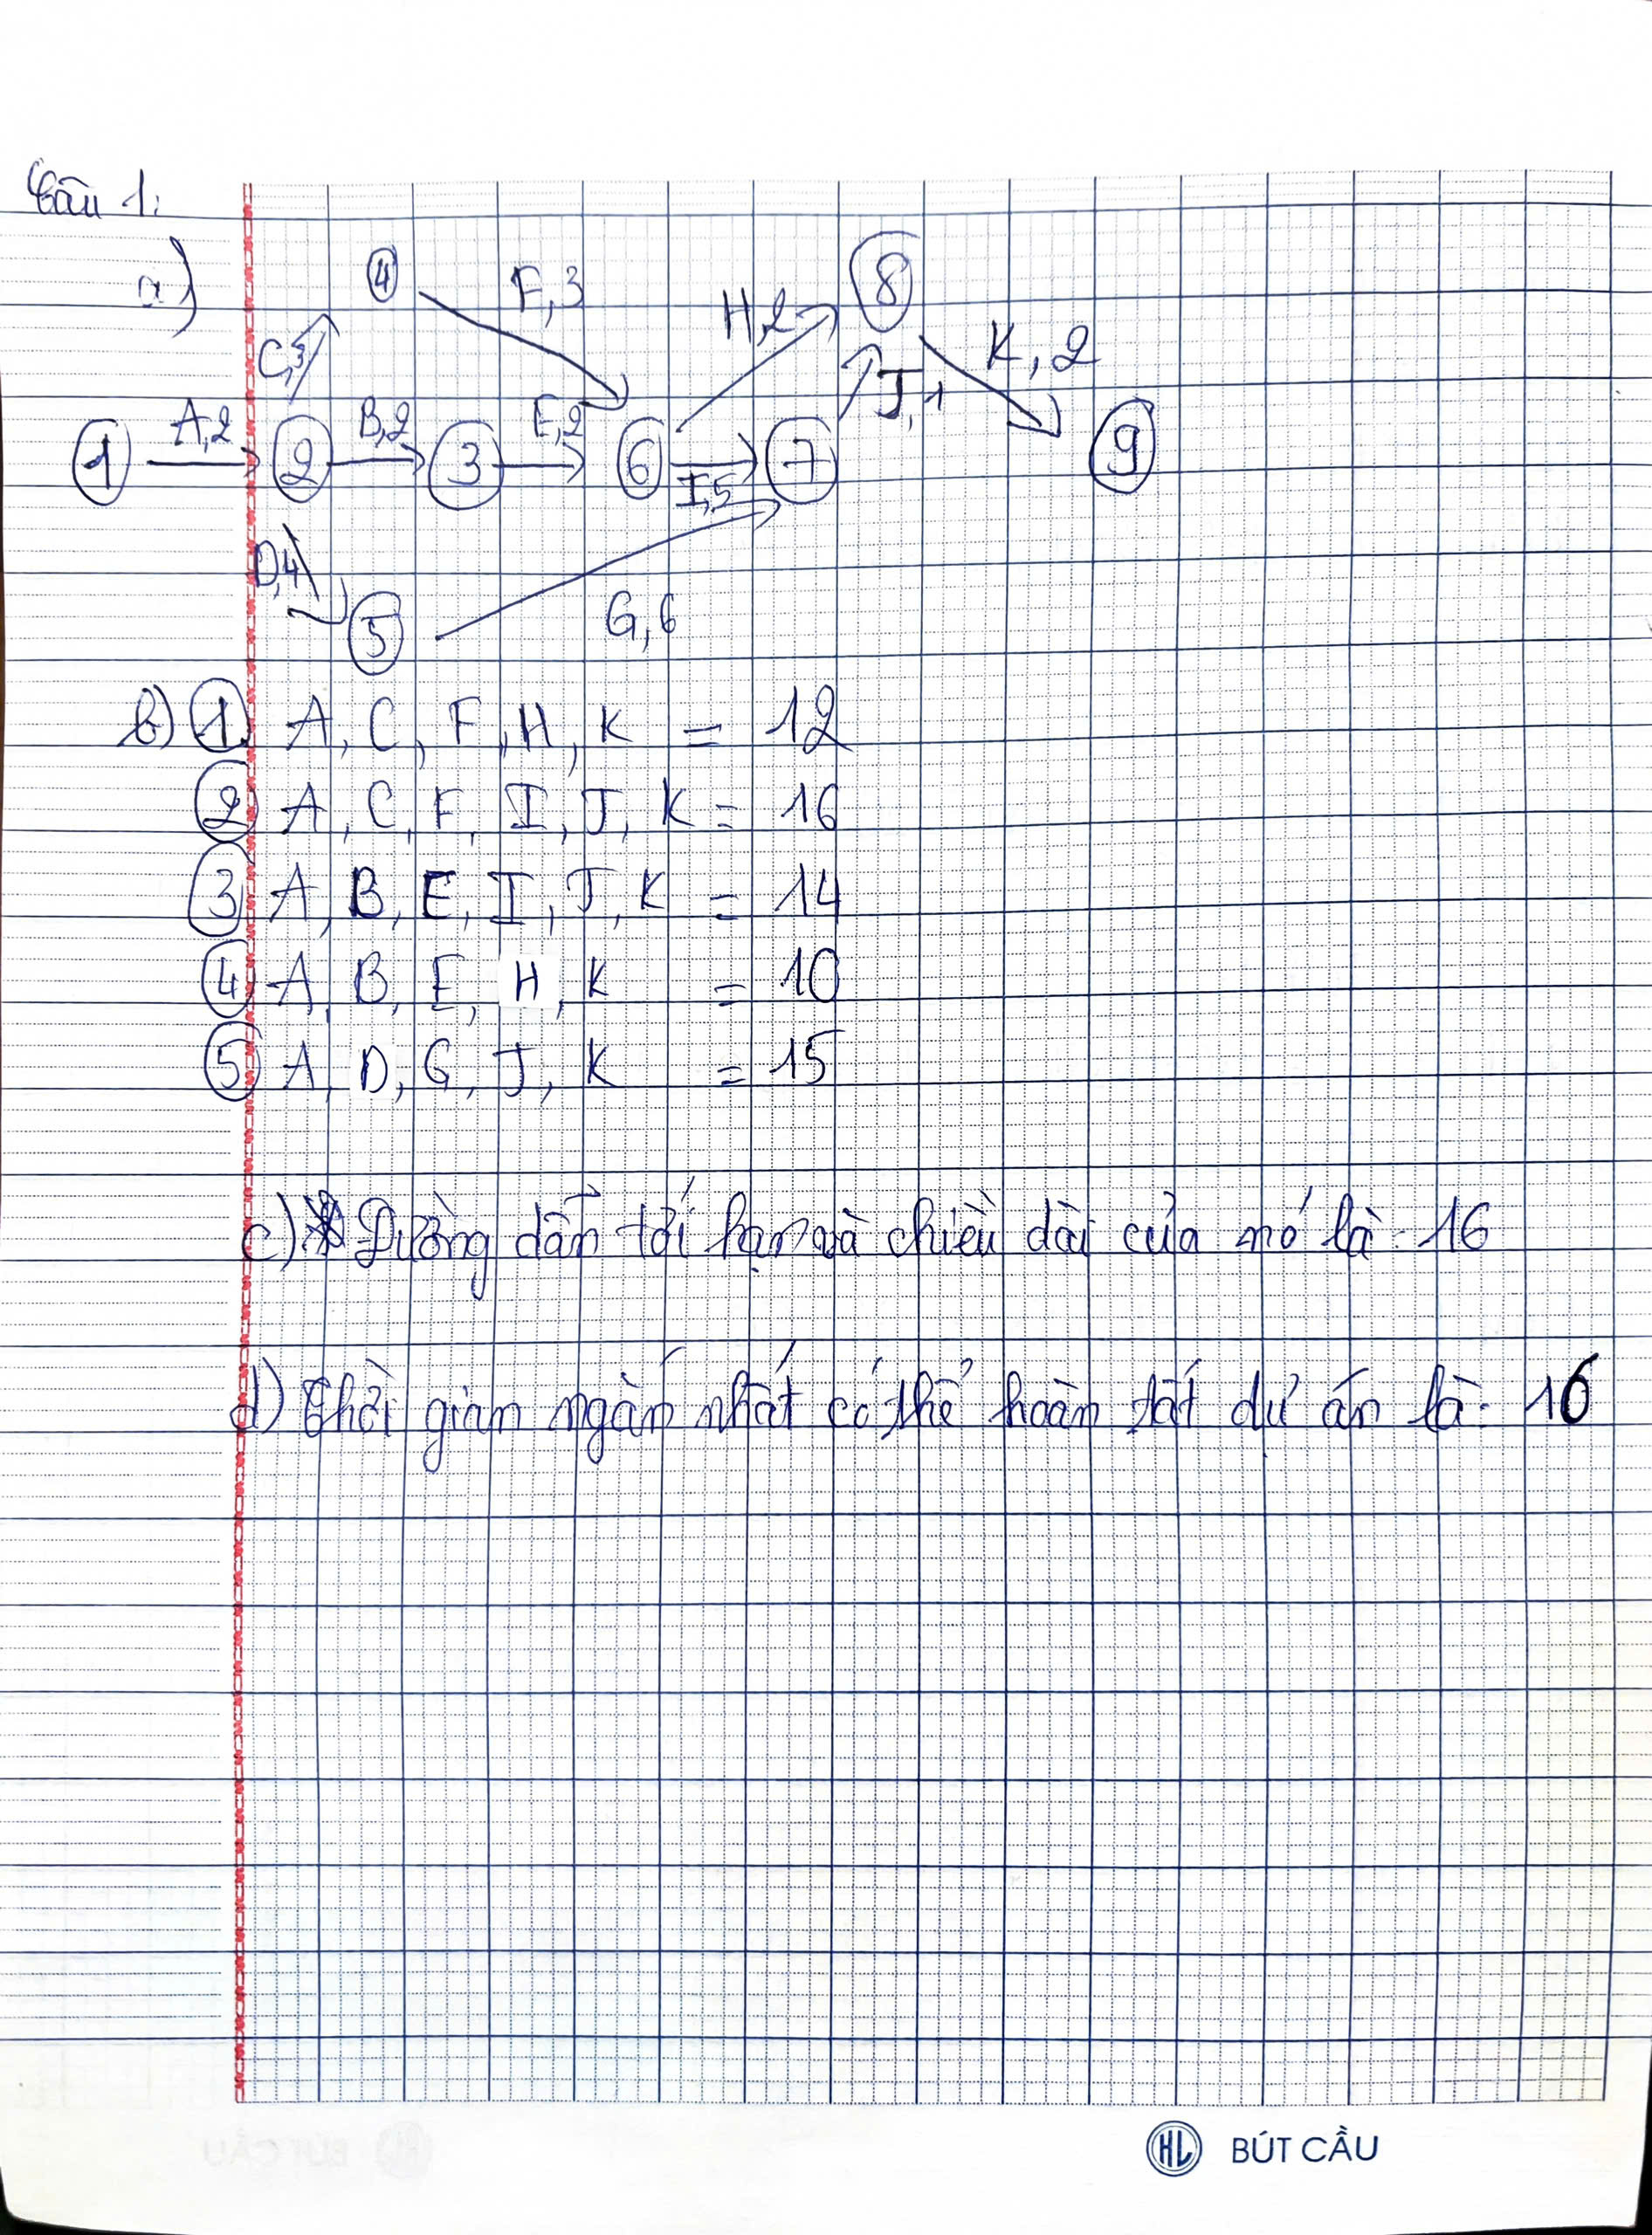 Câu 1:
a)
④ F,3 ⑧
H,2 K,2
C,3 J,1
A,2 B,2 E,2
① ② ③ ⑥ ⑦ ⑨
I,5
D,4
⑤ G,6
b) ① A, C, F, H, K = 12
② A, C, F, I, J, K = 16
③ A, B, E, I, J, K = 14
④ A, B, E, H, K = 10
⑤ A, D, G, J, K = 15
c) Đường dẫn tới hạn và chiều dài của nó là: 16
d) Thời gian ngắn nhất có thể hoàn tất dự án là: 16
HL BÚT CẦU